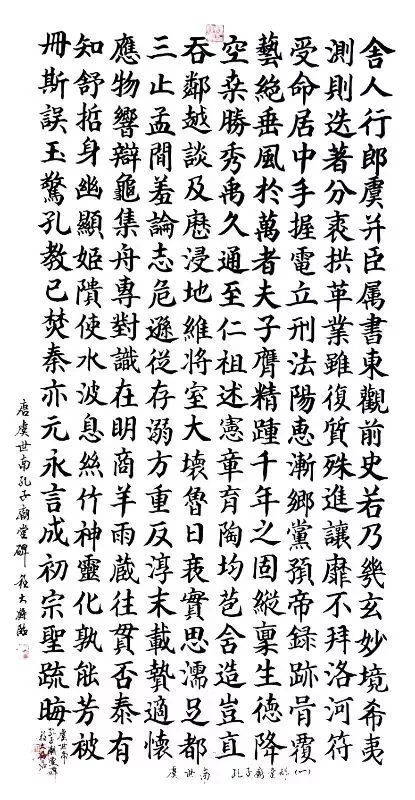 舍人行郎虞并臣属書東觀前史若乃幾玄妙境希夷
測則迭著分衷拱革業雖復質殊進讓靡不拜洛河符
受命居中手握電立刑法陽惠漸鄉黨預帝録跡骨覆
藝絕垂風於萬者夫子膺精踵千年之固縱稟生德降
空桒勝秀禹久通至仁祖述憲章育陶均苞含造豈直
吞鄰越談及歷浸地維將室大壞魯日衰實思濡足都
三止孟間羞論志危遜從存溺方重反淳末載贄適懷
應物響辯龜集舟專對識在明商羊雨蔵往貫否泰有
知舒哲身幽顯姬隤使水波息絲竹神靈化孰能芳被
冊斯誤玉驚孔教已焚秦亦元永言成初宗聖疏晦
唐虞世南孔子廟堂碑 大 臨
虞世南 孔子廟堂碑(一)
虞世南
孔子廟堂碑